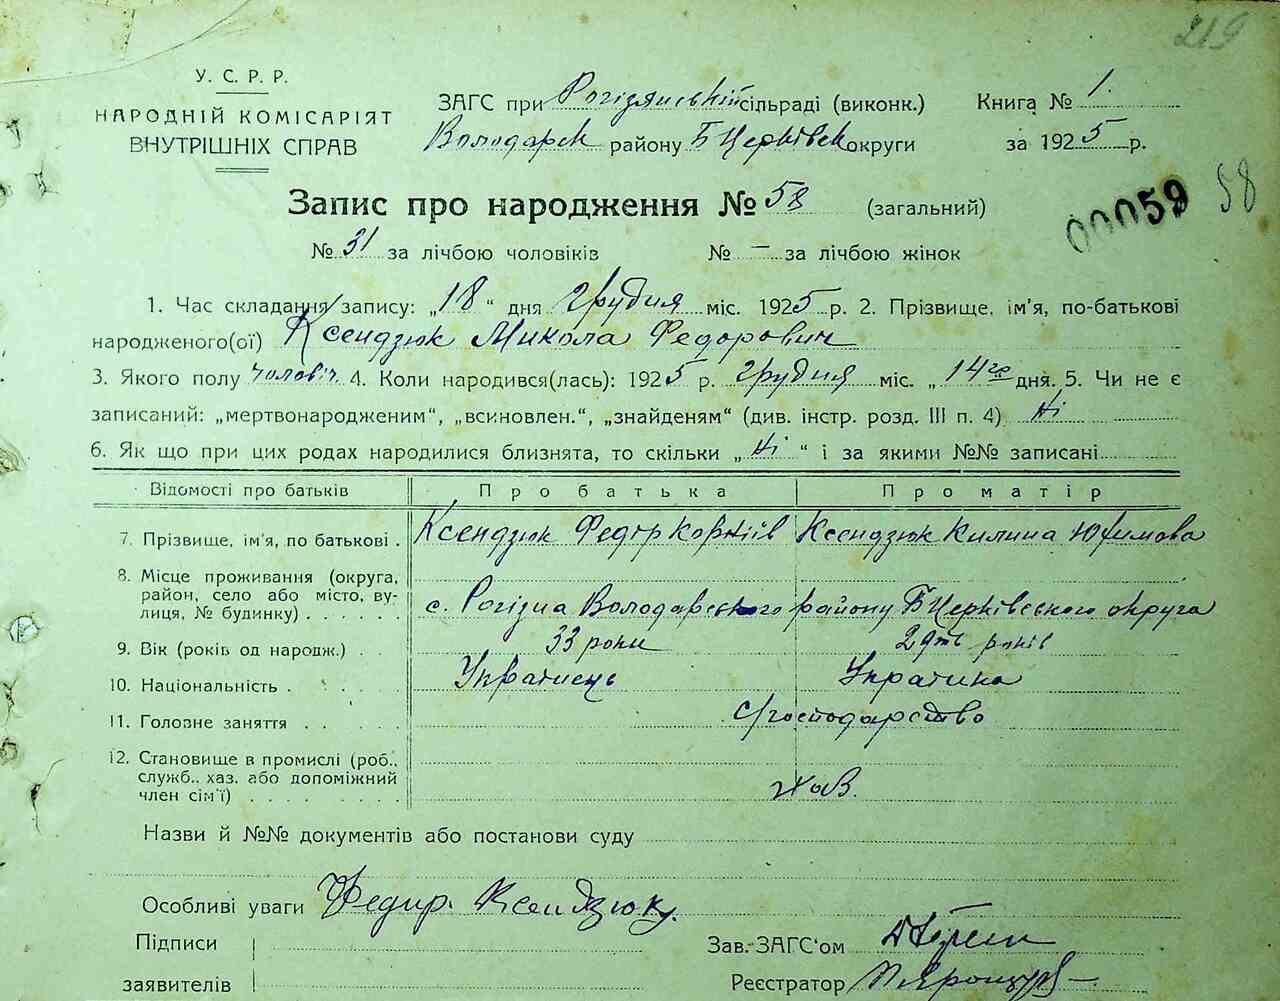 219
У. С. Р. Р.
НАРОДНІЙ КОМІСАРІЯТ
ВНУТРІШНІХ СПРАВ
ЗАГС при Рогізянській сільраді (виконк.)
Володарськ району Б Церківськ округи
Книга № 1.
за 1925 р.
Запис про народження № 58 (загальний)
00059 58
№ 31 за лічбою чоловіків № — за лічбою жінок
1. Час складання запису: „18“ дня Грудня міс. 1925 р. 2. Прізвище, ім'я, по-батькові
народженого(ої) Ксендзюк Микола Федорович
3. Якого полу чоловіч 4. Коли народився(лась): 1925 р. Грудня міс. „14го дня. 5. Чи не є
записаний: „мертвонародженим“, „всиновлен.“, „знайденям“ (див. інстр. розд. III п. 4) Ні
6. Як що при цих родах народилися близнята, то скільки „Ні“ і за якими №№ записані
Відомості про батьків Про батька Про матір
7. Прізвище, ім'я, по батькові . Ксендзюк Федір Корніїв Ксендзюк Килина Юхимова
8. Місце проживання (округа,
район, село або місто, ву-
лиця, № будинку) . . . . . . с. Рогізна Володарського району Б Церківського округа
9. Вік (років од народж.) . . 33 роки 29ть років
10. Національність . . . . . Українець Українка
11. Головне заняття . . . . . с/господарство
12. Становище в промислі (роб.,
служб., хаз. або допоміжний
член сім'ї) . . . . . . . . хаз.
Назви й №№ документів або постанови суду
Особливі уваги Федир. Ксендзюку.
Підписи
заявителів
Зав. ЗАГС'ом
Реєстратор